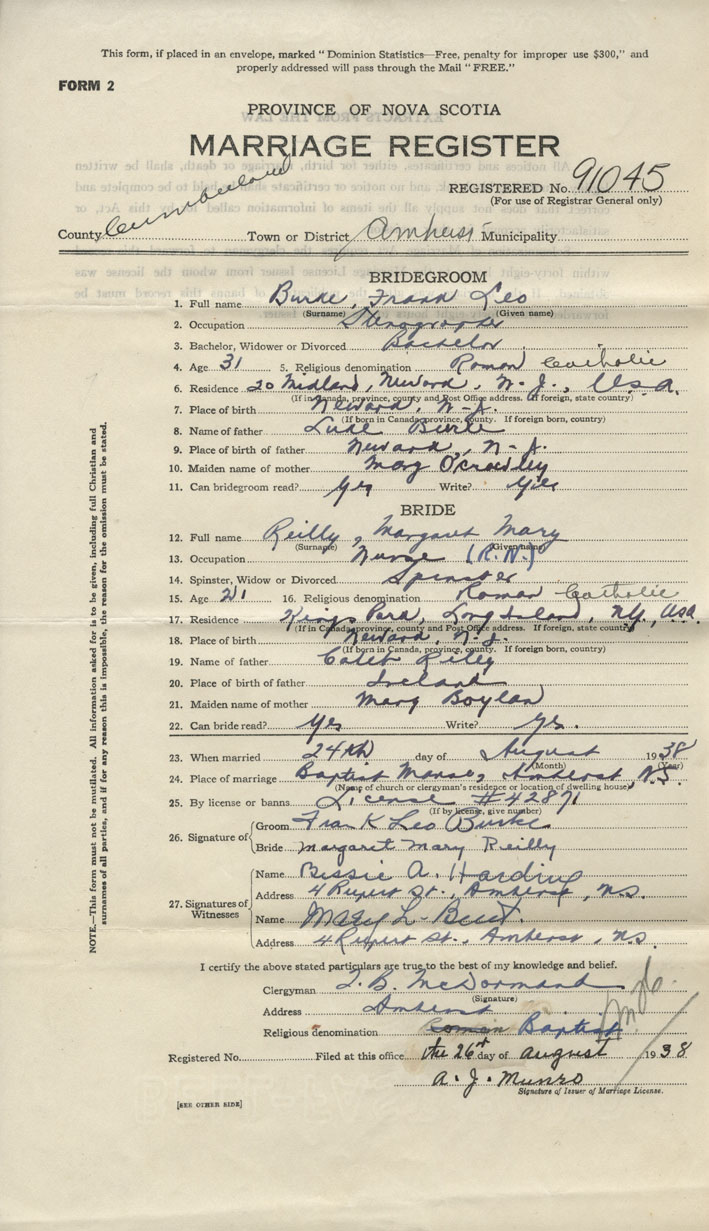 This form, if placed in an envelope, marked “Dominion Statistics—Free, penalty for improper use $300,” and
properly addressed will pass through the Mail “FREE.”
FORM 2
PROVINCE OF NOVA SCOTIA
MARRIAGE REGISTER
REGISTERED No. 91045
(For use of Registrar General only)
County Cumberland Town or District Amherst Municipality
BRIDEGROOM
1. Full name Burke, Frank Leo
(Surname) (Given name)
2. Occupation Stenographer
3. Bachelor, Widower or Divorced Bachelor
4. Age 31 5. Religious denomination Roman Catholic
6. Residence 20 Midland, Newark, N-J., U.S.A.
(If in Canada, province, county and Post Office address. If foreign, state country)
7. Place of birth Newark, N-J.
(If born in Canada, province, county. If foreign born, country)
8. Name of father Luke Burke
9. Place of birth of father Newark, N-J.
10. Maiden name of mother Mary O'Crowley
11. Can bridegroom read? Yes Write? Yes
BRIDE
12. Full name Reilly, Margaret Mary
(Surname) (Given name)
13. Occupation Nurse (R.N.)
14. Spinster, Widow or Divorced Spinster
15. Age 21 16. Religious denomination Roman Catholic
17. Residence Kings Park, Long Island, N.Y., USA.
(If in Canada, province, county and Post Office address. If foreign, state country)
18. Place of birth Newark, N.J.
(If born in Canada, province, county. If foreign born, country)
19. Name of father Caleb Reiley
20. Place of birth of father Ireland
21. Maiden name of mother Mary Boylan
22. Can bride read? Yes Write? Yes.
23. When married 24th day of August 1938
(Month) (Year)
24. Place of marriage Baptist Manse, Amherst, N.S.
(Name of church or clergyman's residence or location of dwelling house)
25. By license or banns License #42871
(If by license, give number)
26. Signature of
Groom Frank Leo Burke
Bride Margaret Mary Reilly
27. Signatures of Witnesses
Name Bessie A. Harding
Address 4 Rupert St., Amherst, N.S.
Name Mary L. Burt
Address 4 Rupert St., Amherst, N.S.
I certify the above stated particulars are true to the best of my knowledge and belief.
Clergyman J. B. McDormand
(Signature)
Address Amherst
Religious denomination Roman Baptist
Registered No. Filed at this office the 26th day of August 1938
A. J. Munro
Signature of Issuer of Marriage License.
[SEE OTHER SIDE]
NOTE.—This form must not be mutilated. All information asked for is to be given, including full Christian and
surnames of all parties, and if for any reason this is impossible, the reason for the omission must be stated.